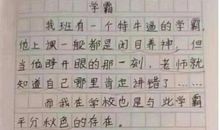 学霸
我班有一个特牛逼的学霸,
他上课一般都是闭目养神,但
当他睁开眼的那一刻,老师就
知道自己哪里肯定讲错了……
而我在学校也是与此学霸
平分秋色的存在。